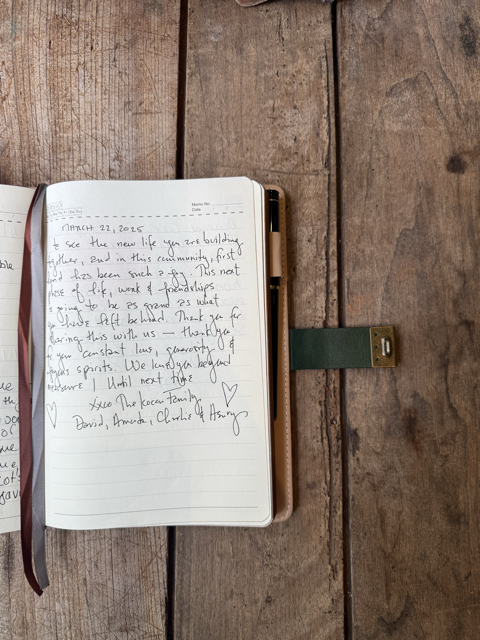 Memo No.
Date
MARCH 22, 2025
to see the new life you are building
gether, and in this community, first
nd has been such a joy. This next
hase of life, work & friendships
s going to be as grand as what
you have left behind. Thank you for
haring this with us — thank you
r you constant love, generosity &
spirits. We love you beyond
measure! Until next time
xxco The Kocour Family
David, Amanda, Charlie & Henry